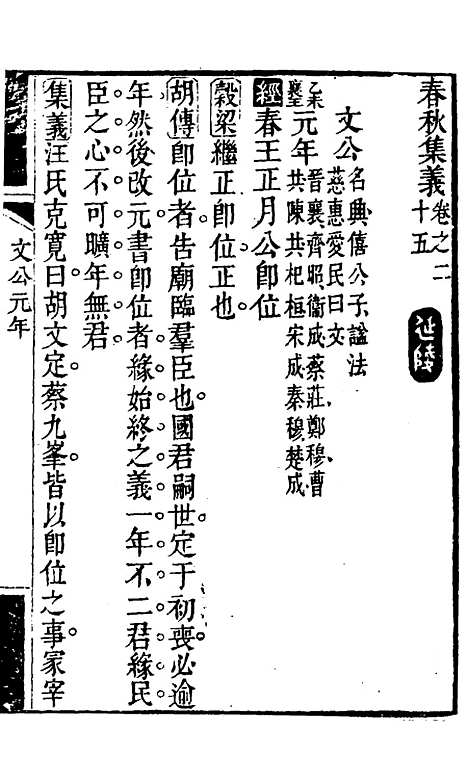 春秋集義卷之二十五
延陵
文公名興僖公子諡法慈惠愛民曰文
乙未襄王元年晉襄齊昭衛成蔡莊鄭穆曹共陳共杞桓宋成秦穆楚成
經春王正月公卽位
穀梁繼正卽位正也
胡傳卽位者告廟臨羣臣也國君嗣世定于初喪必逾
年然後改元書卽位者緣始終之義一年不二君緣民
臣之心不可曠年無君
集義汪氏克寬曰胡文定蔡九峯皆以卽位之事冢宰
文公元年